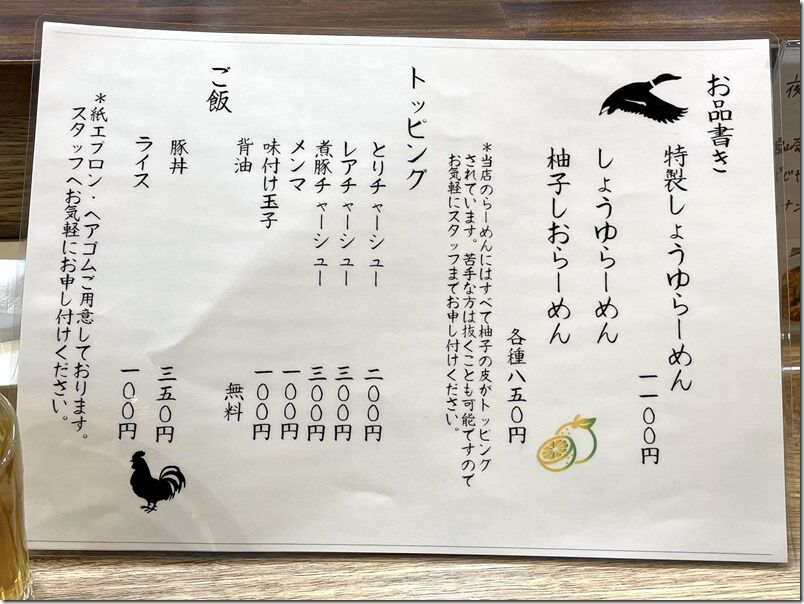 お品書き
特製しょうゆらーめん
一一〇〇円
しょうゆらーめん
柚子しおらーめん
各種八五〇円
*当店のらーめんにはすべて柚子の皮がトッピング
されています。苦手な方は抜くことも可能ですので
お気軽にスタッフまでお申し付けください。
トッピング
とりチャーシュー 二〇〇円
レアチャーシュー 三〇〇円
煮豚チャーシュー 三〇〇円
メンマ 一〇〇円
味付け玉子 一〇〇円
背油 無料
ご飯
豚丼 三五〇円
ライス 一〇〇円
*紙エプロン・ヘアゴムご用意しております。
スタッフへお気軽にお申し付けください。